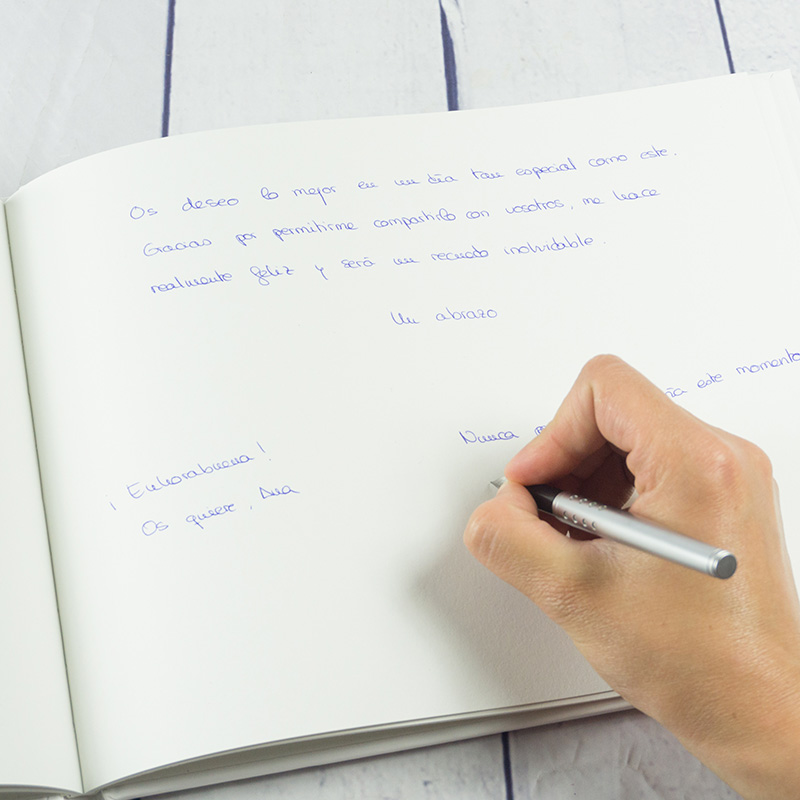 Os deseo lo mejor en un día tan especial como este.
Gracias por permitirme compartirlo con vosotros, me hace
realmente feliz y será un recuerdo inolvidable.
Un abrazo
¡Enhorabuena!
Os quiere, Ana
Nunca este momento